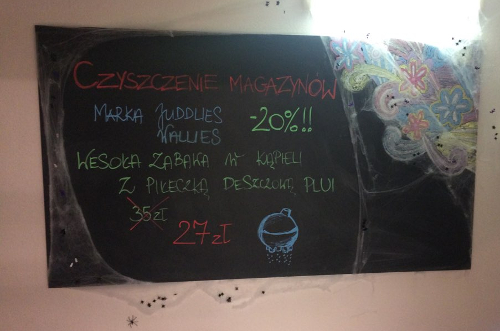 CZYSZCZENIE MAGAZYNÓW
MARKA JUDDLIES
WALLIES
-20%!!
WESOŁA ZABAWA W KĄPIELI
Z PIŁECZKĄ DESZCZOWĄ PLUI
35zł
27zł